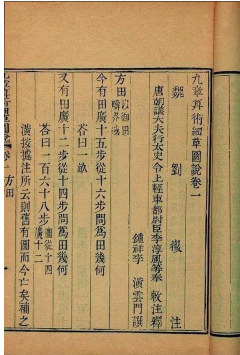 九章算術細草圖說卷一
魏劉徽注
唐朝議大夫行太史令上輕車都尉臣李淳風等奉敕注釋
鍾祥李潢雲門譔
方田以御田疇界域
今有田廣十五步從十六步問為田幾何
荅曰一畝
又有田廣十二步從十四步問為田幾何
荅曰一百六十八步圖從十四廣十二
潢按據注所云則舊有圖而今亡矣補之